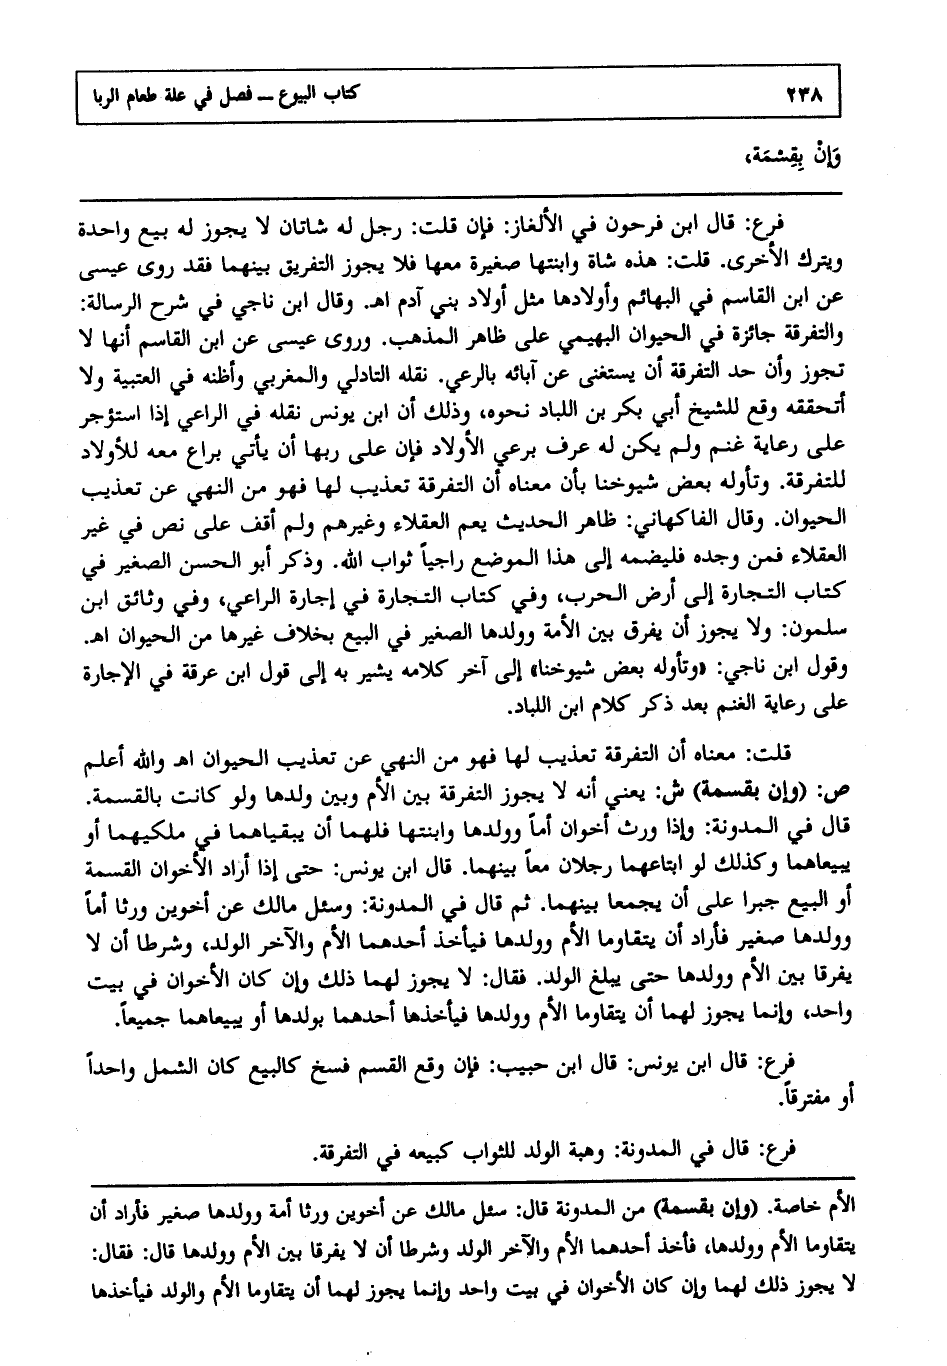 ٢٣٨ كتاب البيوع ــ فصل في علة طعام الربا
وَإنْ بِقِسْمَة،
فرع: قال ابن فرحون في الألغاز: فإن قلت: رجل له شاتان لا يجوز له بيع واحدة
ويترك الأخرى. قلت: هذه شاة وابنتها صغيرة معها فلا يجوز التفريق بينهما فقد روى عيسى
عن ابن القاسم في البهائم وأولادها مثل أولاد بني آدم اهـ. وقال ابن ناجي في شرح الرسالة:
والتفرقة جائزة في الحيوان البهيمي على ظاهر المذهب. وروى عيسى عن ابن القاسم أنها لا
تجوز وأن حد التفرقة أن يستغنى عن آبائه بالرعي. نقله التادلي والمغربي وأظنه في العتبية ولا
أتحققه وقع للشيخ أبي بكر بن اللباد نحوه، وذلك أن ابن يونس نقله في الراعي إذا استؤجر
على رعاية غنم ولم يكن له عرف برعي الأولاد فإن على ربها أن يأتي براع معه للأولاد
للتفرقة. وتأوله بعض شيوخنا بأن معناه أن التفرقة تعذيب لها فهو من النهي عن تعذيب
الحيوان. وقال الفاكهاني: ظاهر الحديث يعم العقلاء وغيرهم ولم أقف على نص في غير
العقلاء فمن وجده فليضمه إلى هذا الموضع راجياً ثواب الله. وذكر أبو الحسن الصغير في
كتاب التجارة إلى أرض الحرب، وفي كتاب التجارة في إجارة الراعي، وفي وثائق ابن
سلمون: ولا يجوز أن يفرق بين الأمة وولدها الصغير في البيع بخلاف غيرها من الحيوان اهـ.
وقول ابن ناجي: «وتأوله بعض شيوخنا» إلى آخر كلامه يشير به إلى قول ابن عرقة في الإجارة
على رعاية الغنم بعد ذكر كلام ابن اللباد.
قلت: معناه أن التفرقة تعذيب لها فهو من النهي عن تعذيب الحيوان اهـ والله أعلم
ص: (وإن بقسمة) ش: يعني أنه لا يجوز التفرقة بين الأم وبين ولدها ولو كانت بالقسمة.
قال في المدونة: وإذا ورث أخوان أماً وولدها وابنتها فلهما أن يبقياهما في ملكيهما أو
يبيعاهما وكذلك لو ابتاعهما رجلان معاً بينهما. قال ابن يونس: حتى إذا أراد الأخوان القسمة
أو البيع جبرا على أن يجمعا بينهما. ثم قال في المدونة: وسئل مالك عن أخوين ورثا أماً
وولدها صغير فأراد أن يتقاوما الأم وولدها فيأخذ أحدهما الأم والآخر الولد، وشرطا أن لا
يفرقا بين الأم وولدها حتى يبلغ الولد. فقال: لا يجوز لهما ذلك وإن كان الأخوان في بيت
واحد، وإنما يجوز لهما أن يتقاوما الأم وولدها فيأخذها أحدهما بولدها أو يبيعاهما جميعاً.
فرع: قال ابن يونس: قال ابن حبيب: فإن وقع القسم فسخ كالبيع كان الشمل واحداً
أو مفترقاً.
فرع: قال في المدونة: وهبة الولد للثواب كبيعه في التفرقة.
الأم خاصة. (وإن بقسمة) من المدونة قال: سئل مالك عن أخوين ورثا أمة وولدها صغير فأراد أن
يتقاوما الأم وولدها، فأخذ أحدهما الأم والآخر الولد وشرطا أن لا يفرقا بين الأم وولدها قال: فقال:
لا يجوز ذلك لهما وإن كان الأخوان في بيت واحد وإنما يجوز لهما أن يتقاوما الأم والولد فيأخذها